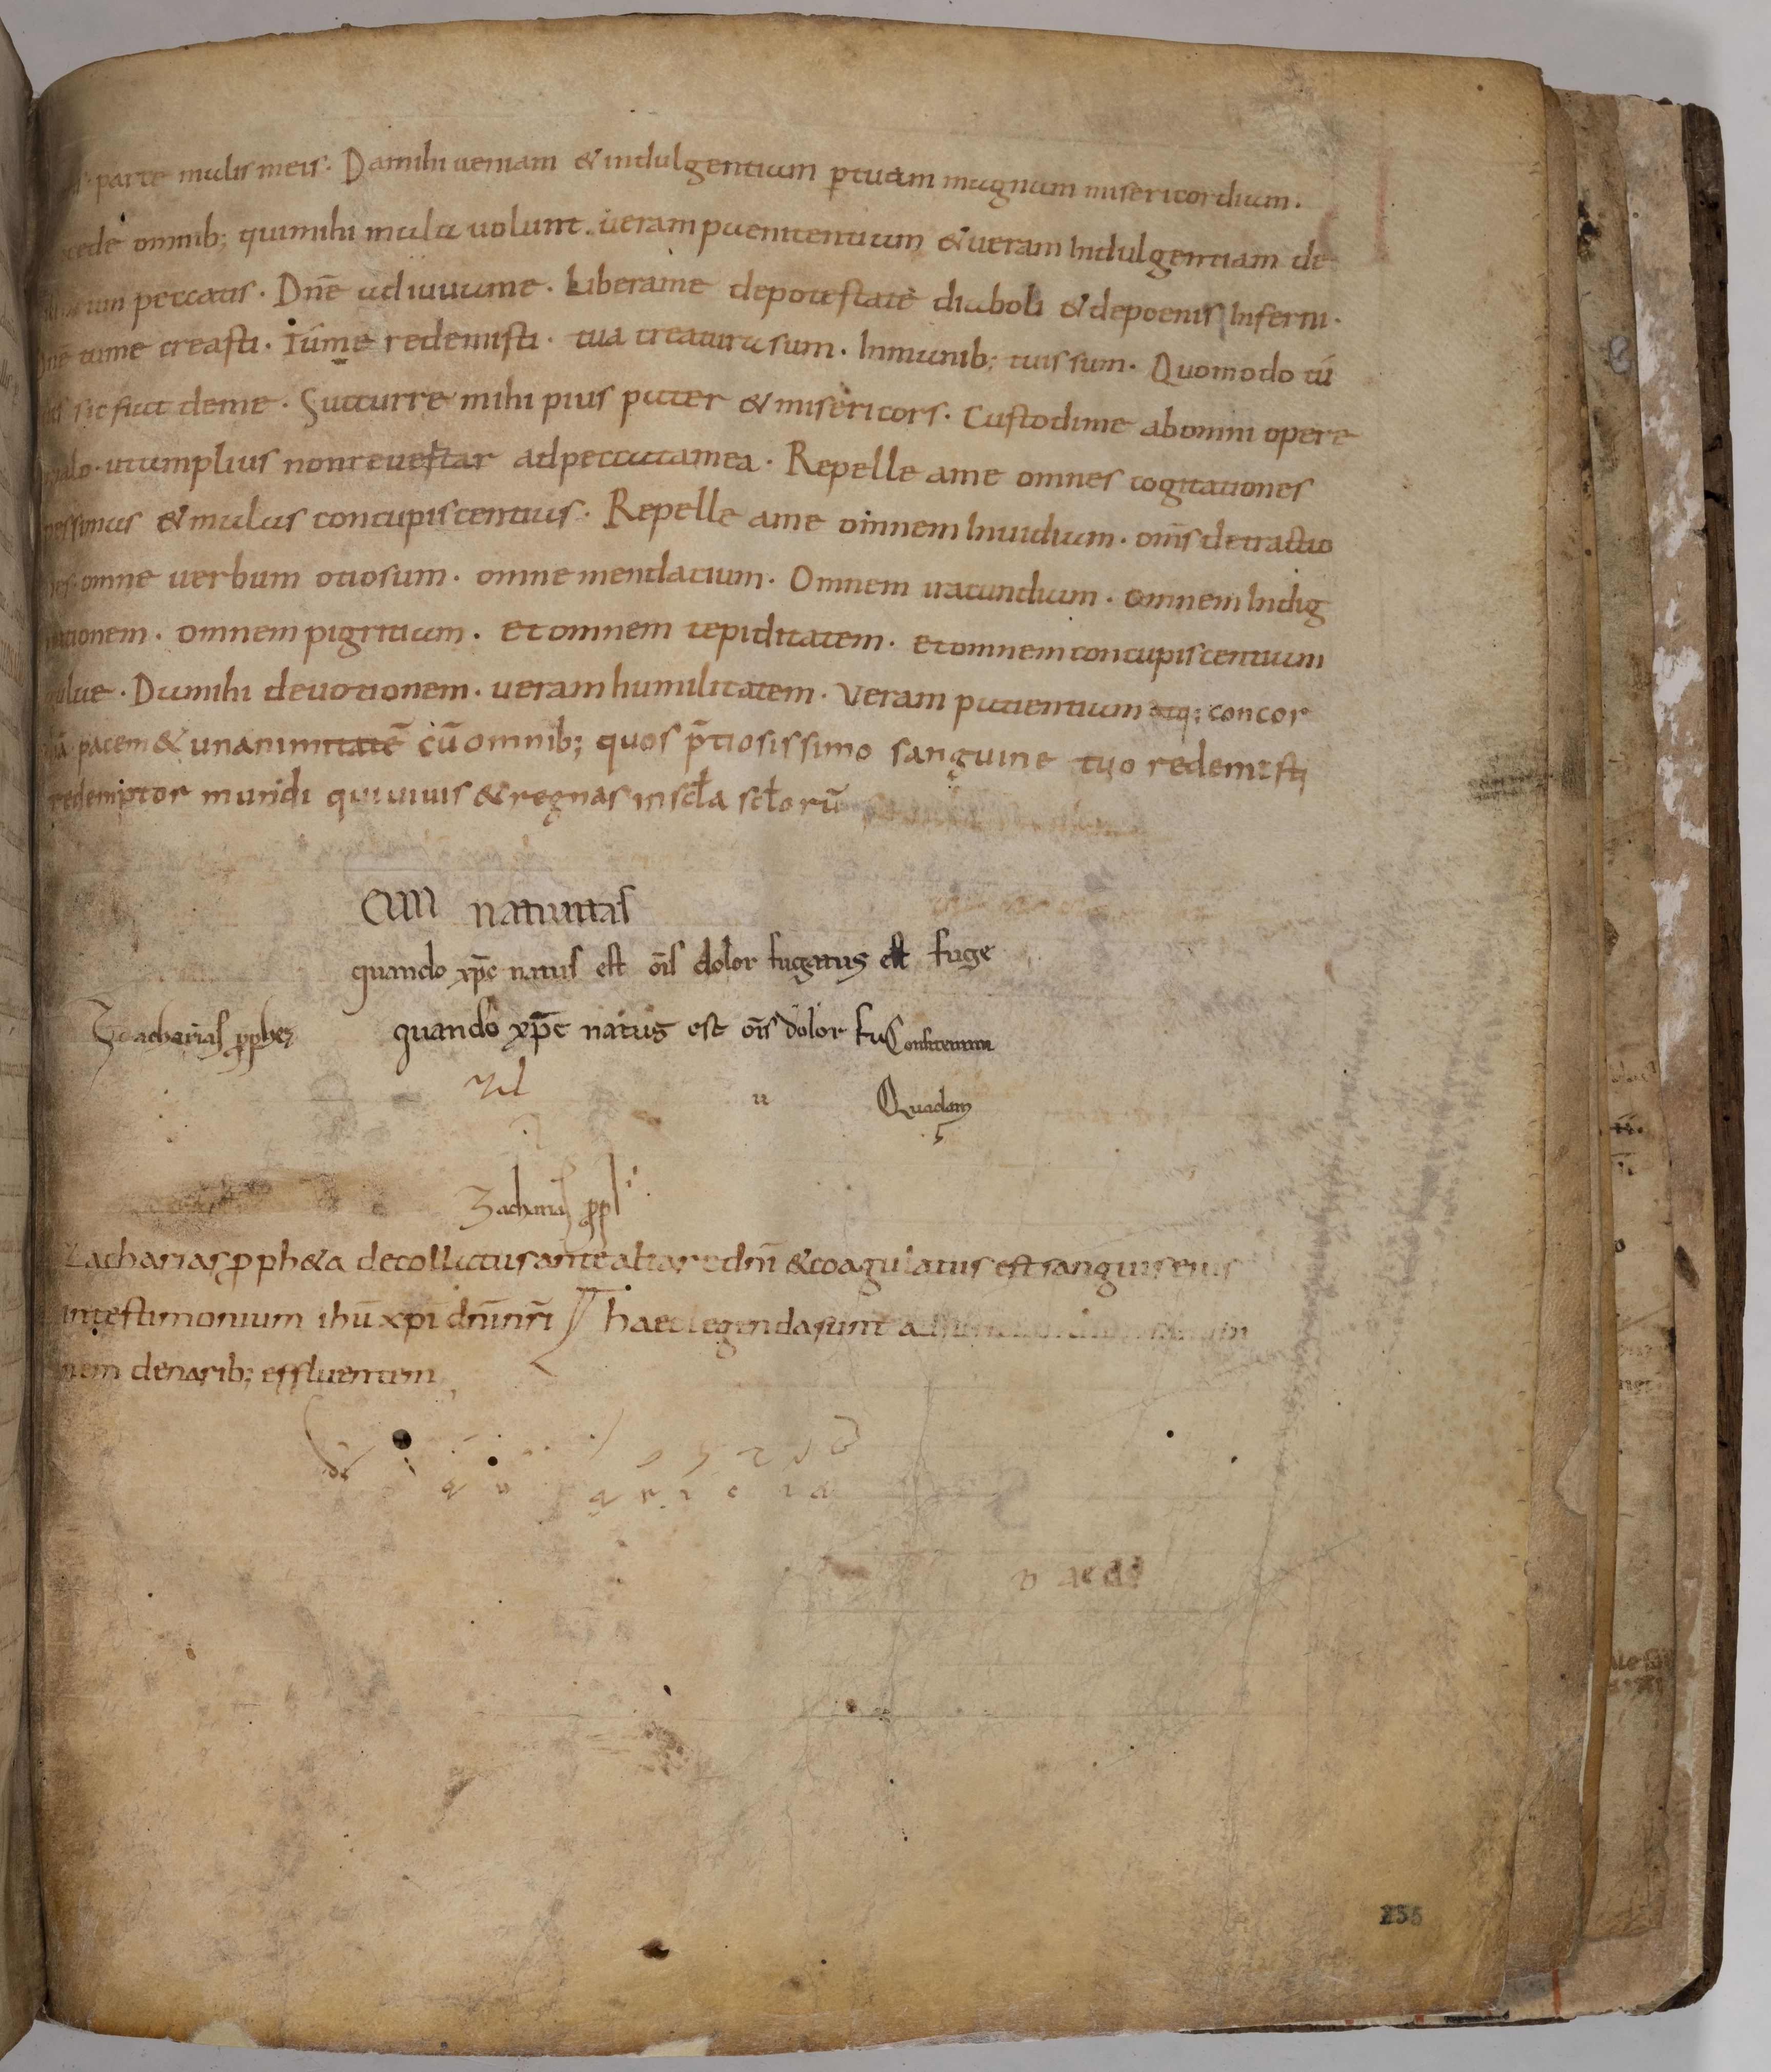 parte malis meis. Da mihi ueniam & indulgentiam p tuam magnam misericordiam.
cede omnib; qui mihi mala uolunt. ueram paenitentiam & ueram Indulgentiam de
peccatis. Dnē adiuuame. Liberame depotestate diaboli & depoenis Inferni.
Dnē tume creasti. Tume redemisti. tua creatura sum. Inmanib; tuis sum. Quomodo tu
uis sic fiat deme. Succurre mihi pius pater & misericors. Custodime abomni opere
malo. utamplius nonreuertar adpeccatamea. Repelle ame omnes cogitationes
pessimas & malas concupiscentias. Repelle ame omnem Inuidiam. omīs detractio
nes. omne uerbum otiosum. omne mendacium. Omnem iracundiam. omnem Indig
nationem. omnem pigritiam. Et omnem tepiditatem. et omnem concupiscentiam
Damihi deuotionem. ueram humilitatem. Veram patientiam atq; concor
pacem & unanimitatē cū omnib; quos p̄tiosissimo sanguine tuo redemisti
redemptor mundi qui uiuis & regnas in scła scłorū
natiuitas
quando xp̄c natus est oīs dolor fugatus est fuge
Zacharias ppheta
quando xp̄c natus est oīs dolor fu Confitemini
u Quadam
Zacharias pph
Zacharias pph&a decollatus ante altare dnī & coagulatus est sanguis eius
in testimonium ihū xp̄i dnī nrī haec legenda sunt
nem denarib; effluentem
236